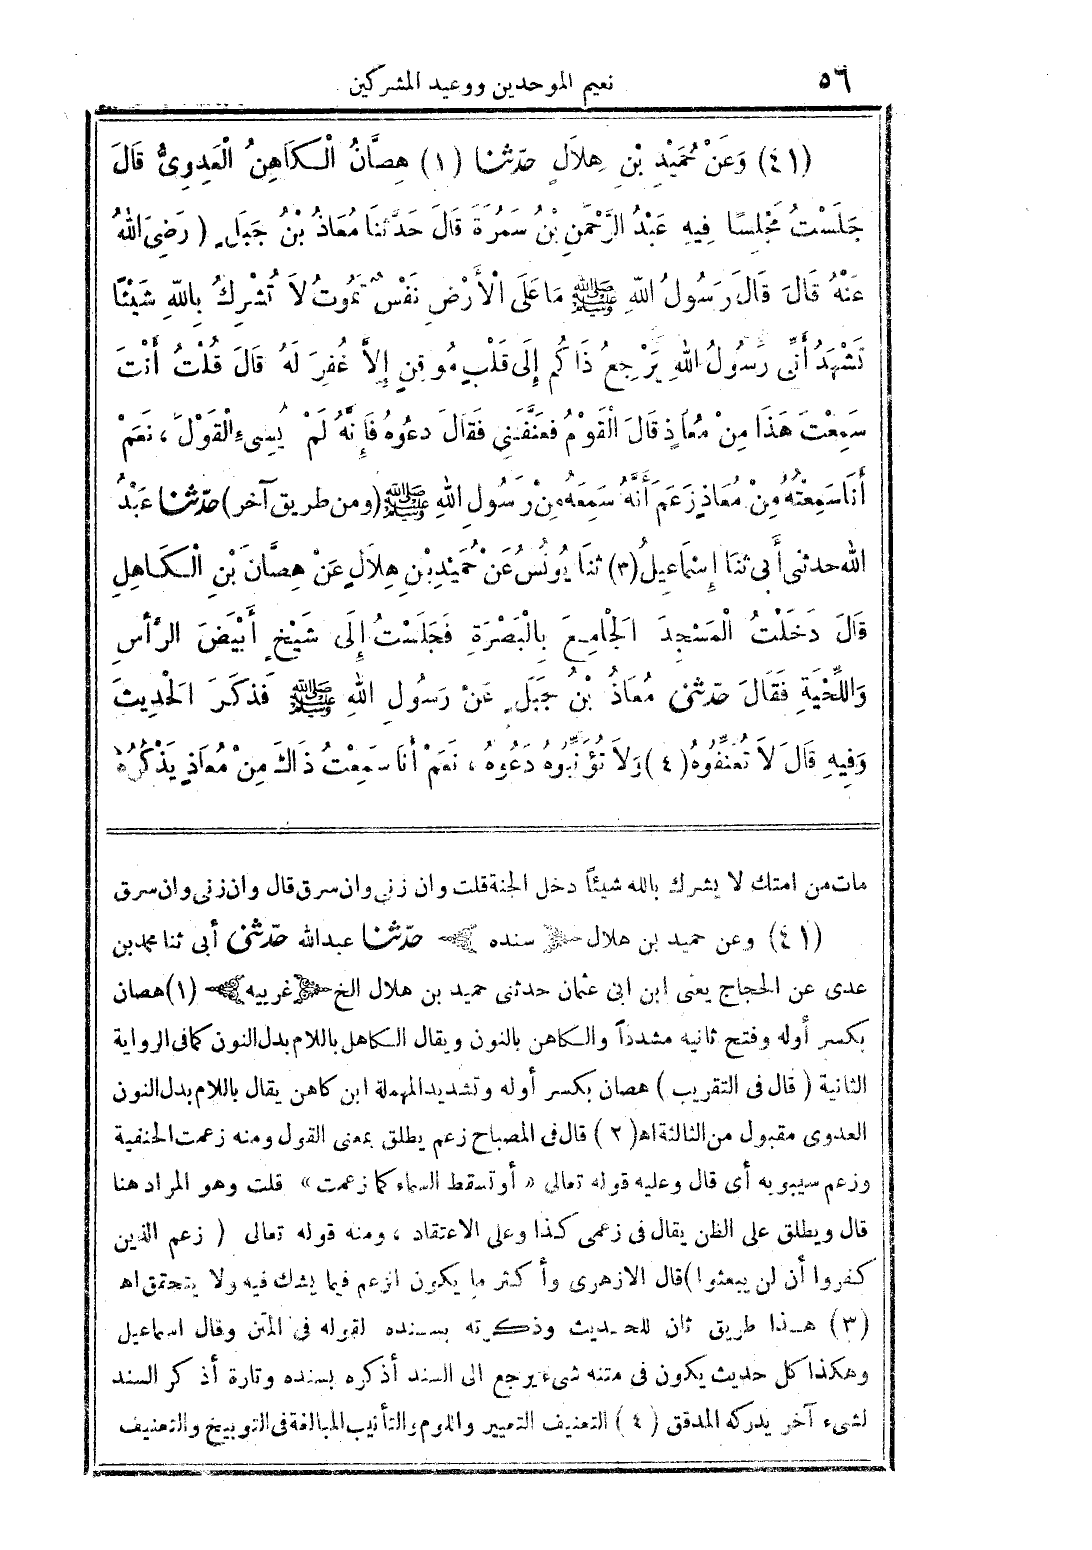 ٥٦
نعيم الموحدين ووعيد المشركين
(٤١) وَعَنْ حُمَيْدِ بْنِ هِلَالٍ حَدّثنا (١) هِصَّانُ الْكَاهِنُ الْعَدِوِىُّ قَالَ
جَلَسْتُ مَجْلِسًا فِيهِ عَبْدُ الرَّحْمَنِ بْنُ سَمُرَةَ قَالَ حَدَّثَنَا مُعَاذُ بْنُ جَبَلٍ ( رَضِىَ اللهُ
عَنْهُ قَالَ قَالَ رَسُولُ اللهِ ﷺ مَا عَلَى الْأَرْضِ نَفْسٌ تَمُوتُ لَا تُشْرِكُ بِاللهِ شَيْئًا
تَشْهَدُ أَنِّى رَسُولُ اللهِ يَرْجِعُ ذَاكُم إِلَى قَلْبٍ مُوقِنٍ إِلاَّ غُفِرَ لَهُ قَالَ قُلْتُ أَنْتَ
سَمِعْتَ هَذَا مِنْ مُعَاذٍ قَالَ الْقَوْمُ فَعَنَّفَنِى فَقَالَ دعُوهُ فَإِنَّهُ لَمْ يُسِىءِ الْقَوْلَ ، نَعَمْ
أَنَا سَمِعْتُهُ مِنْ مُعَاذٍ زَعَمَ أَنَّهُ سَمِعَهُ مِنْ رَسُولِ اللهِ ﷺ (ومن طريق آخر) حَدّثنا عَبْدُ
الله حدثنى أَبِى ثَنَا إِسْمَاعِيلُ (٣) ثَنَا يُونُسُ عَنْ حُمَيْدِ بْنِ هِلَالٍ عَنْ هِصَّانَ بْنِ الْكَاهِلِ
قَالَ دَخَلْتُ الْمَسْجِدَ الجْامِعَ بِالْبَصْرَةِ فَجَلَسْتُ إِلَى شَيْخٍ أَبْيَضَ الرَّأْسِ
وَاللِّحْيَةِ فَقَالَ حَدّثنى مُعَاذُ بْنُ جَبَلٍ عَنْ رَسُولِ اللهِ ﷺ فَذَكَرَ الحْدِيثَ
وَفِيهِ قَالَ لَا تُعَنِّفُوهُ (٤) وَلَا تُؤَنِّبُوهُ دَعُوهُ ، نَعَمْ أَنَا سَمِعْتُ ذَاكَ مِنْ مُعَاذٍ يَذْكُرُهُ
مات من امتك لا يشرك بالله شيئاً دخل الجنة قلت وان زنى وان سرق قال وان زنى وان سرق
(٤١) وعن حميد بن هلال ﴿ سنده ﴾ حدّثنا عبدالله حدّثنى أبى ثنا محمد بن
عدى عن الحجاج يعنى ابن ابى عثمان حدثنى حميد بن هلال الخ ﴿غريبه﴾ (١) هصان
بكسر أوله وفتح ثانيه مشدداً والكاهن بالنون ويقال الكاهل باللام بدل النون كما فى الرواية
الثانية ( قال فى التقريب ) هصان بكسر أوله وتشديد المهملة ابن كاهن يقال باللام بدل النون
العدوى مقبول من الثالثة اه‍ (٢) قال فى المصباح زعم يطلق بمعنى القول ومنه زعمت الحنفية
وزعم سيبويه أى قال وعليه قوله تعالى « أو تسقط السماء كما زعمت » قلت وهو المراد هنا
قال ويطلق على الظن يقال فى زعمى كذا وعلى الاعتقاد ، ومنه قوله تعالى ( زعم الذين
كفروا أن لن يبعثوا ) قال الازهرى وأكثر ما يكون الزعم فيما يشك فيه ولا يتحقق اه‍
(٣) هذا طريق ثان للحديث وذكرته بسنده لقوله فى المتن وقال اسماعيل
وهكذا كل حديث يكون فى متنه شىء يرجع الى السند أذكره بسنده وتارة أذكر السند
لشىء آخر يدركه المدقق (٤) التعنيف التعيير واللوم والتأنيب المبالغة فى التوبيخ والتعنيف